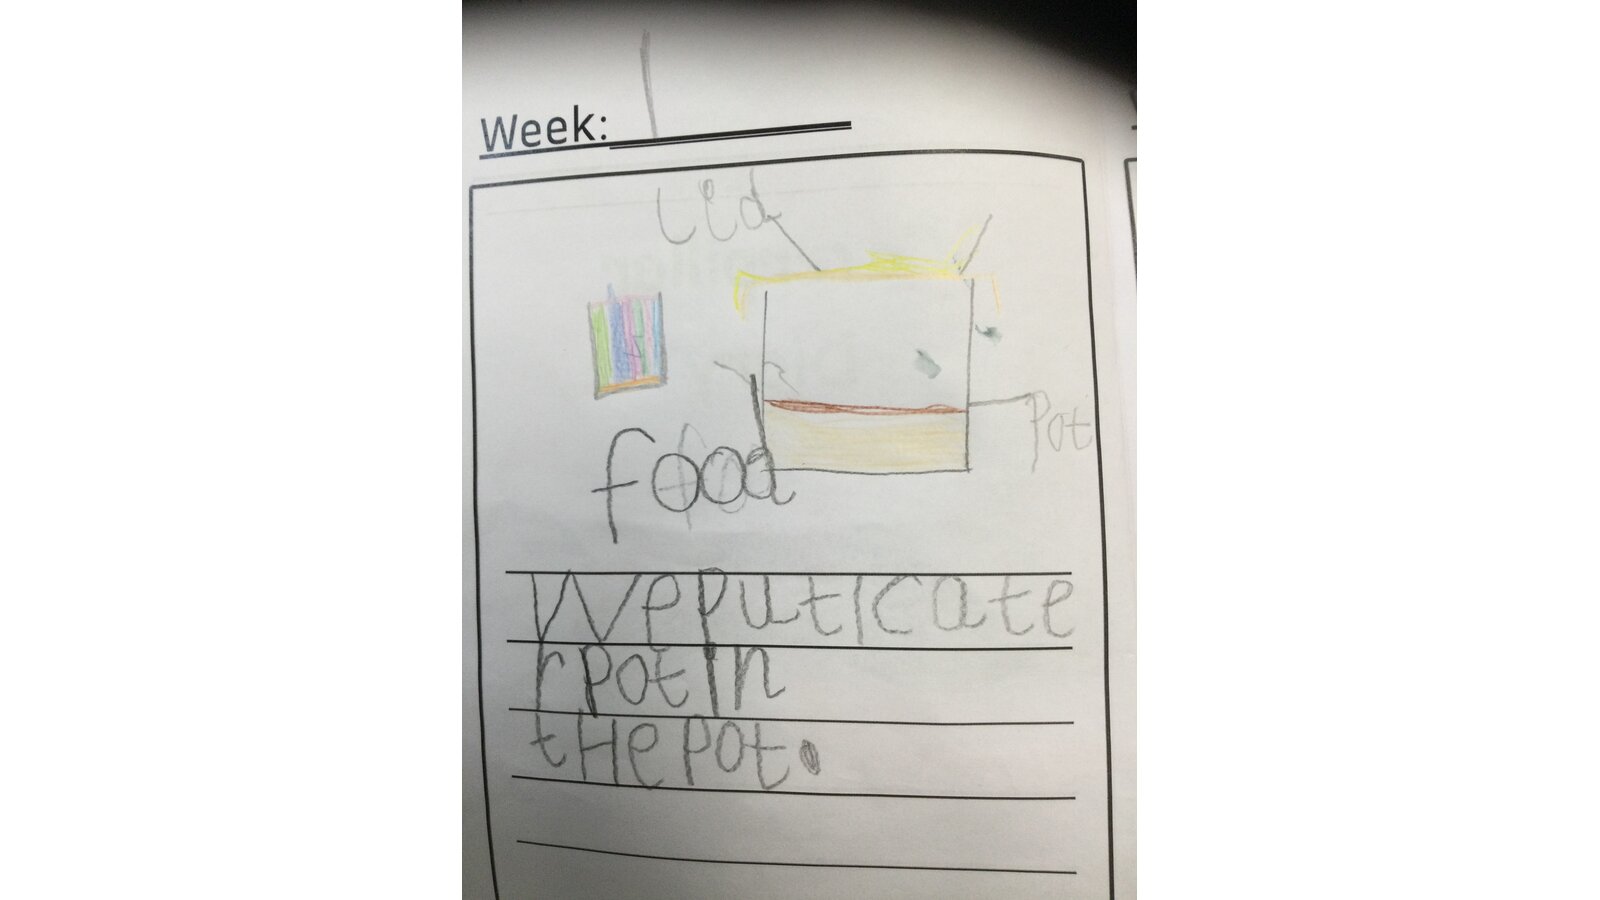 Week: 1
Lid
Pot
food
We put icate
r pot in
tHe pot.